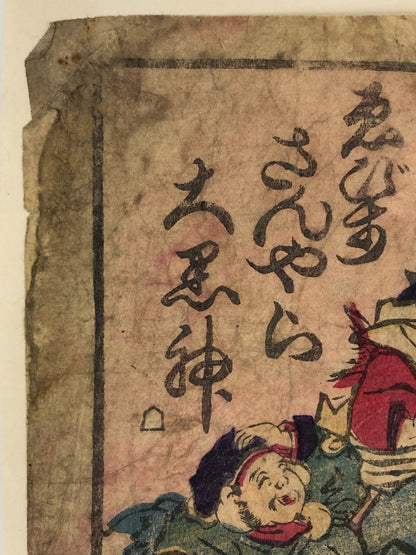 ゑびす
さんやら
大黒神